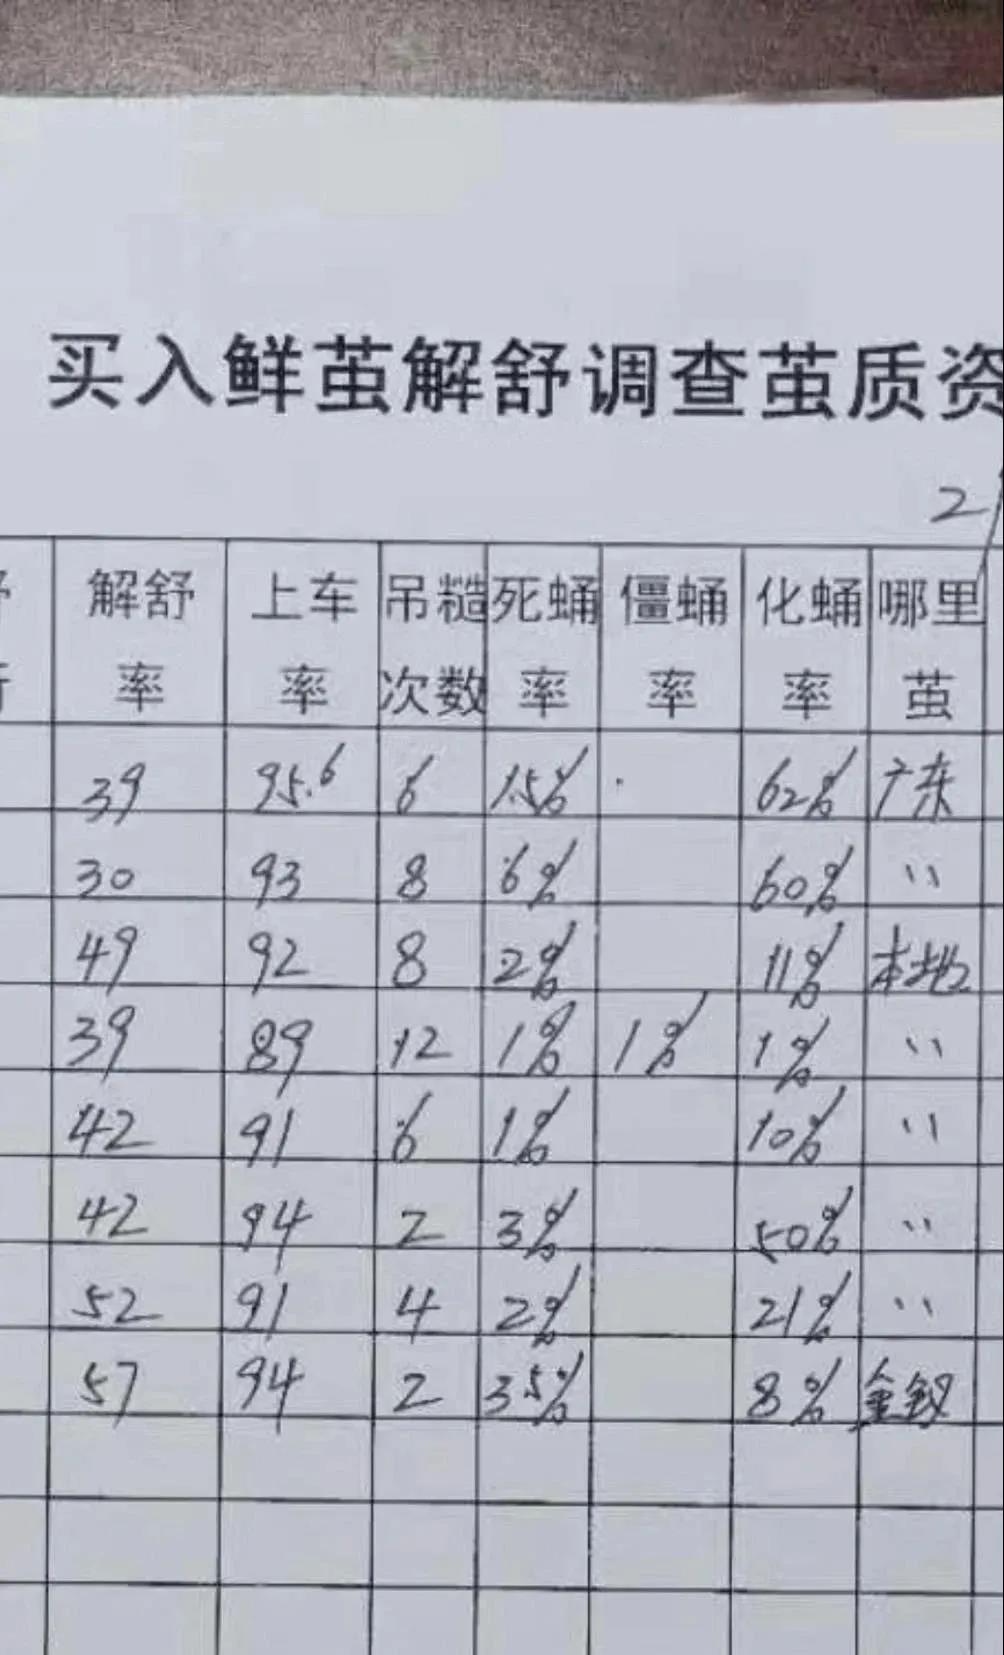 买入鲜茧解舒调查茧质资
2
解舒率 上车率 吊糙次数 死蛹率 僵蛹率 化蛹率 哪里茧
39 95.6 6 1.5% 62% 广东
30 93 8 6% 60% 〃
49 92 8 2% 11% 本地
39 89 12 1% 1% 1% 〃
42 91 6 1% 10% 〃
42 94 2 3% 50% 〃
52 91 4 2% 21% 〃
57 94 2 3.5% 8% 金钗